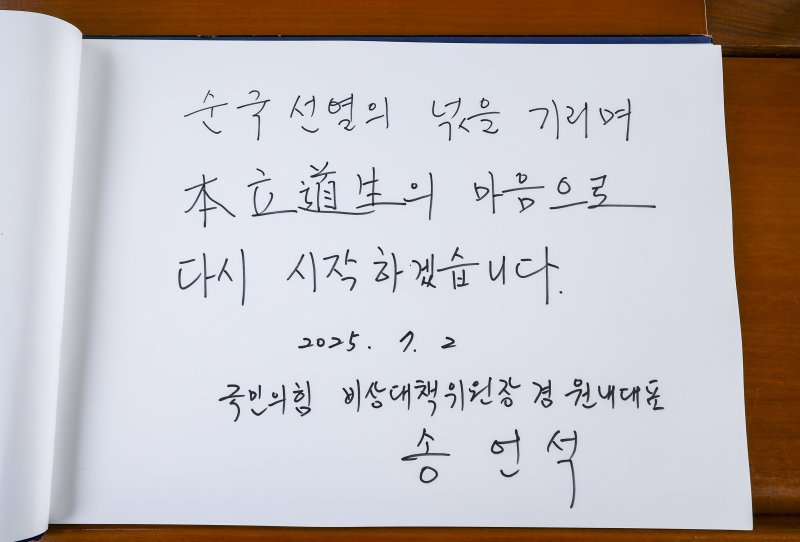 순국 선열의 넋을 기리며
本立道生의 마음으로
다시 시작하겠습니다.
2025. 7. 2
국민의힘 비상대책위원장 겸 원내대표
송언석